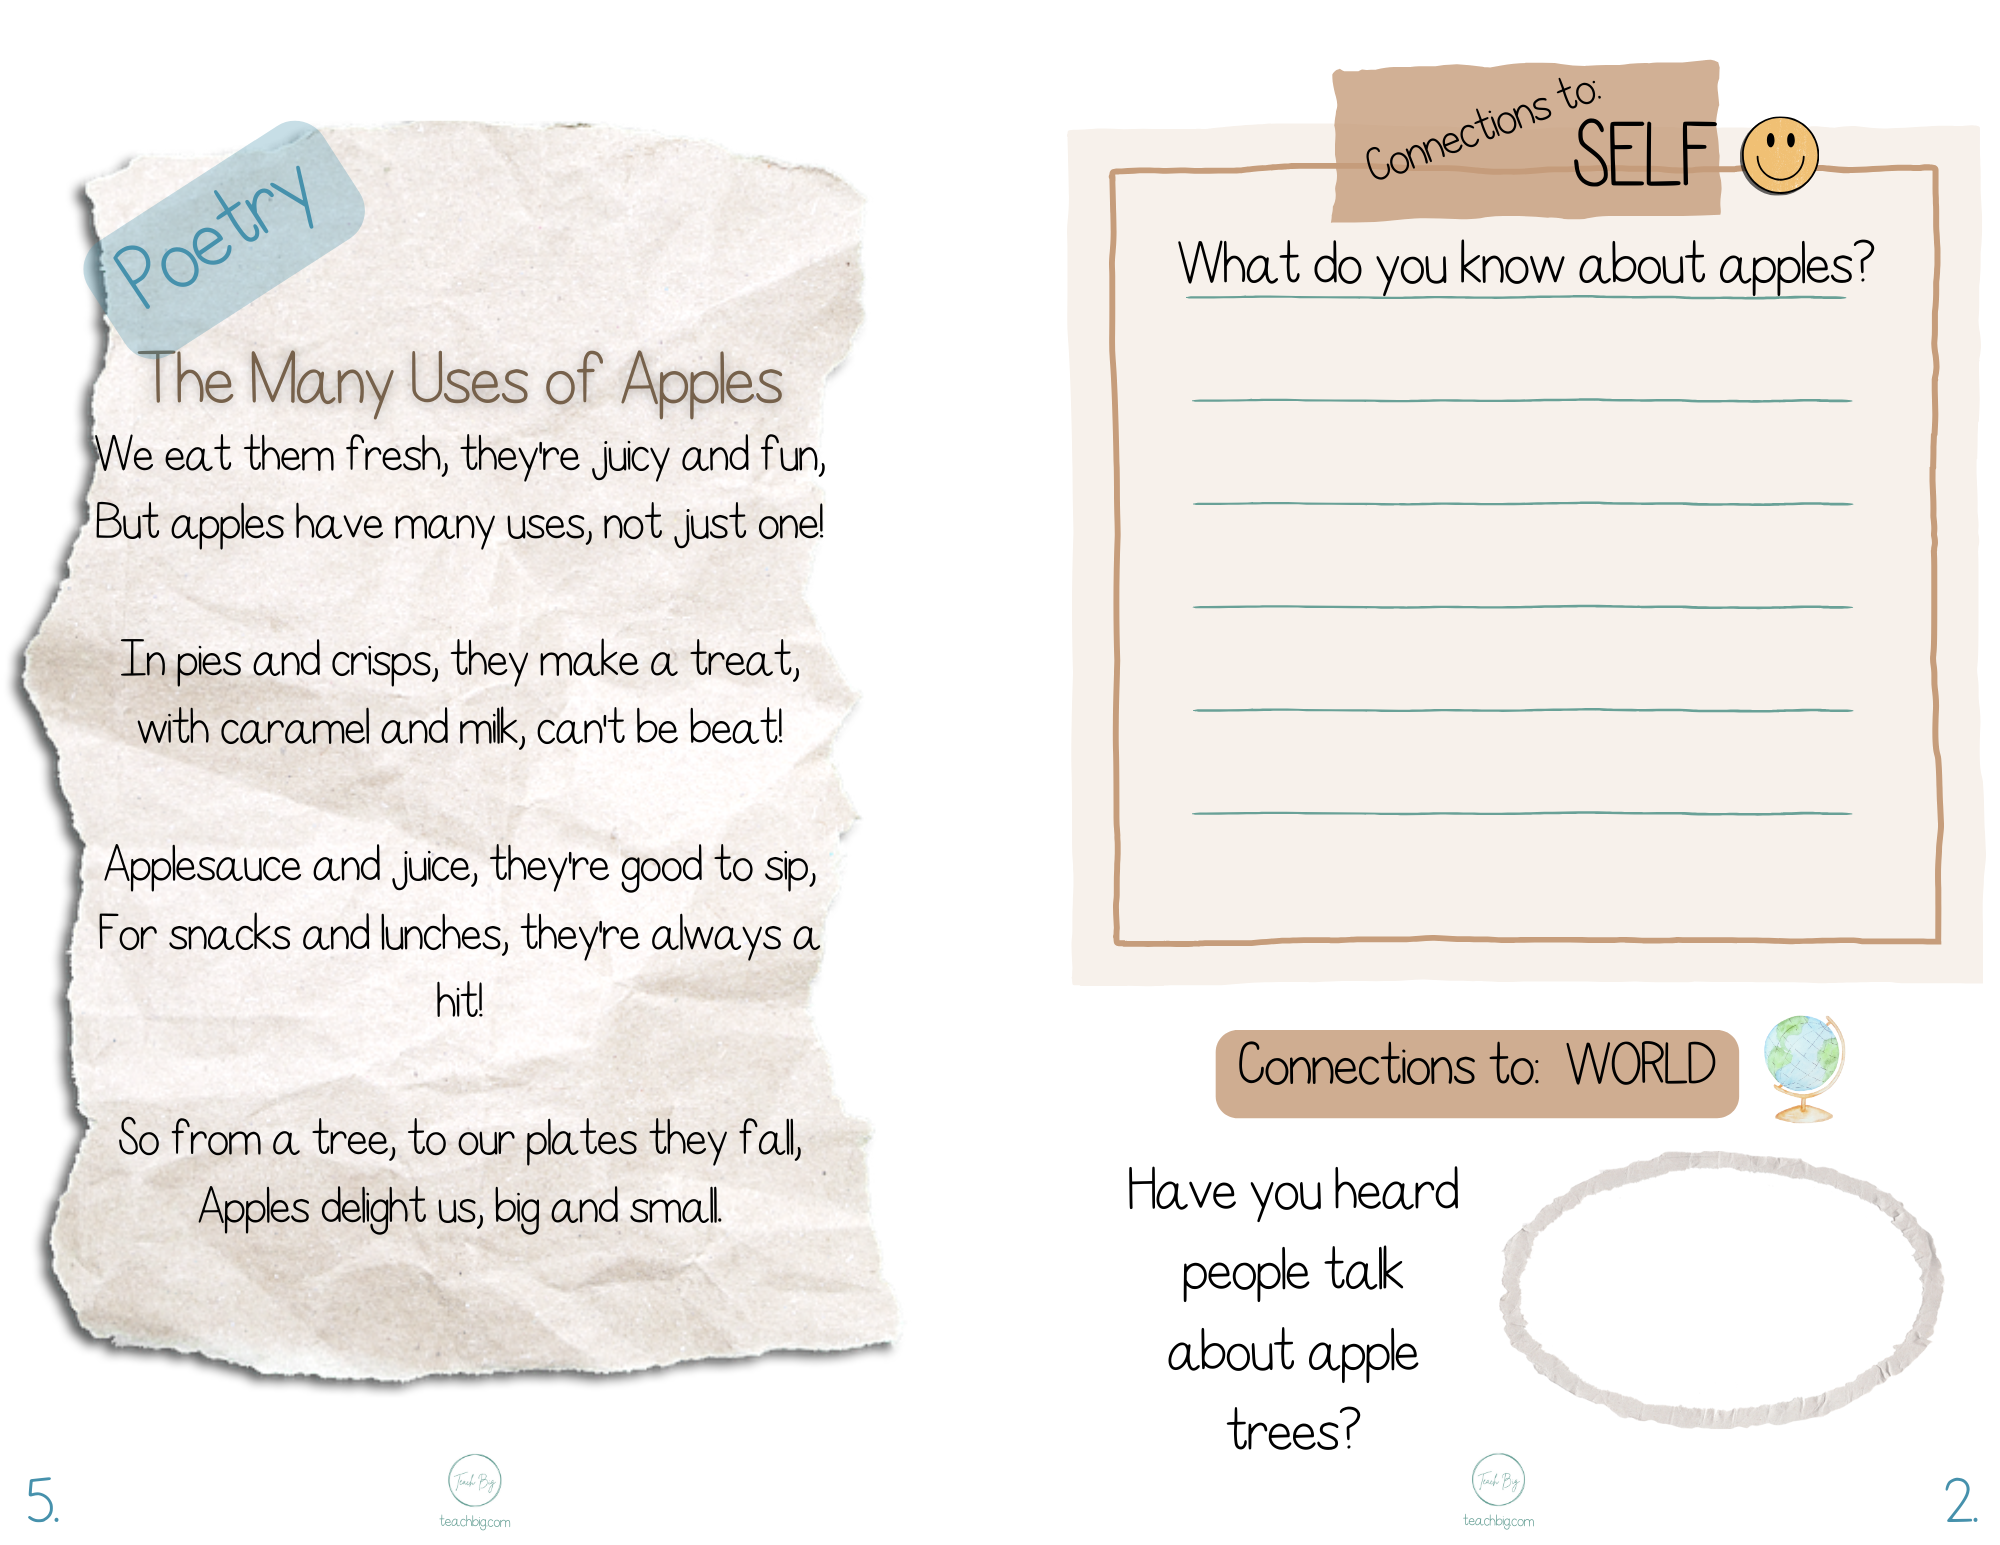 Poetry
The Many Uses of Apples
We eat them fresh, they're juicy and fun,
But apples have many uses, not just one!
In pies and crisps, they make a treat,
with caramel and milk, can't be beat!
Applesauce and juice, they're good to sip,
For snacks and lunches, they're always a
hit!
So from a tree, to our plates they fall,
Apples delight us, big and small.
5.
Teach Big
teachbig.com
Connections to:
SELF
What do you know about apples?
Connections to: WORLD
Have you heard
people talk
about apple
trees?
Teach Big
teachbig.com
2.